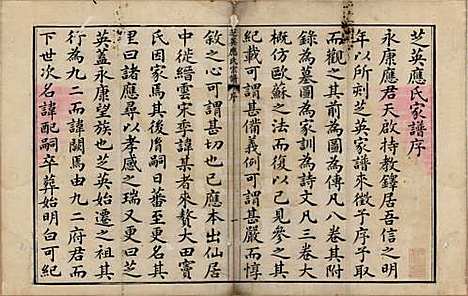 芝英應氏家譜序
永康應君天啟持教鐸居吾信之明
年以所刻芝英家譜來徵子序子取
而觀之其前為圖為傳凡八卷其附
錄為墓圖為家訓為詩文凡三卷大
概仿歐蘇之法而復以己見參之其
紀載可謂甚備義例可謂甚嚴而惇
芝英應氏宗譜 序 一
敘之心可謂甚切也已應本出仙居
中徙縉雲宋季諱某者來贅大田竇
氏因家焉其後胤嗣日蕃至更其所
里曰諸應尋以孝感之瑞又更曰芝
英蓋永康望族也芝英始遷之祖其
行為九二而諱闕焉由九二府君而
下世次名諱配嗣卒葬始明白可紀